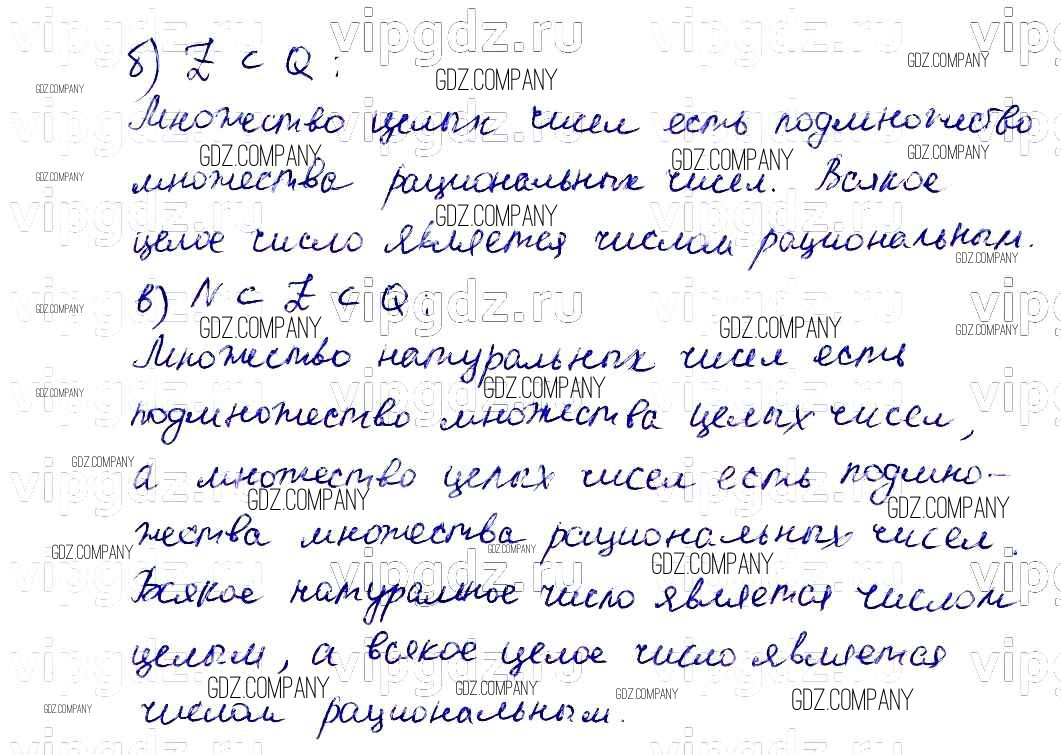 б) Z ⊂ Q:
Множество целых чисел есть подмножество
множества рациональных чисел. Всякое
целое число является числом рациональным.
в) N ⊂ Z ⊂ Q.
Множество натуральных чисел есть
подмножество множества целых чисел,
а множество целых чисел есть подмно-
жества множества рациональных чисел.
Всякое натуральное число является числом
целым, а всякое целое число является
числом рациональным.
vipgdz.ru
GDZ.COMPANY